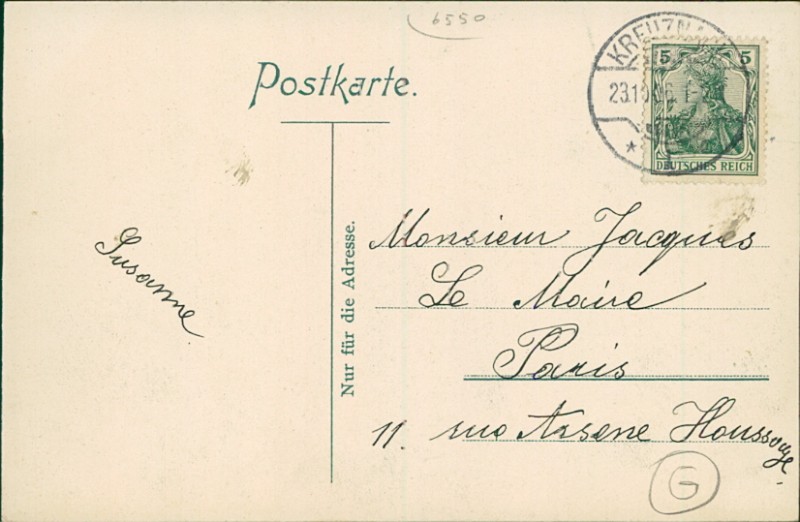 6550
Postkarte.
KREUZNA
23.10.06. 1-
*
5 5
DEUTSCHES REICH
Nur für die Adresse.
Susanne
Monsieur Jacques
Le Maire
Paris
11. rue Arsene Houssaye.
G